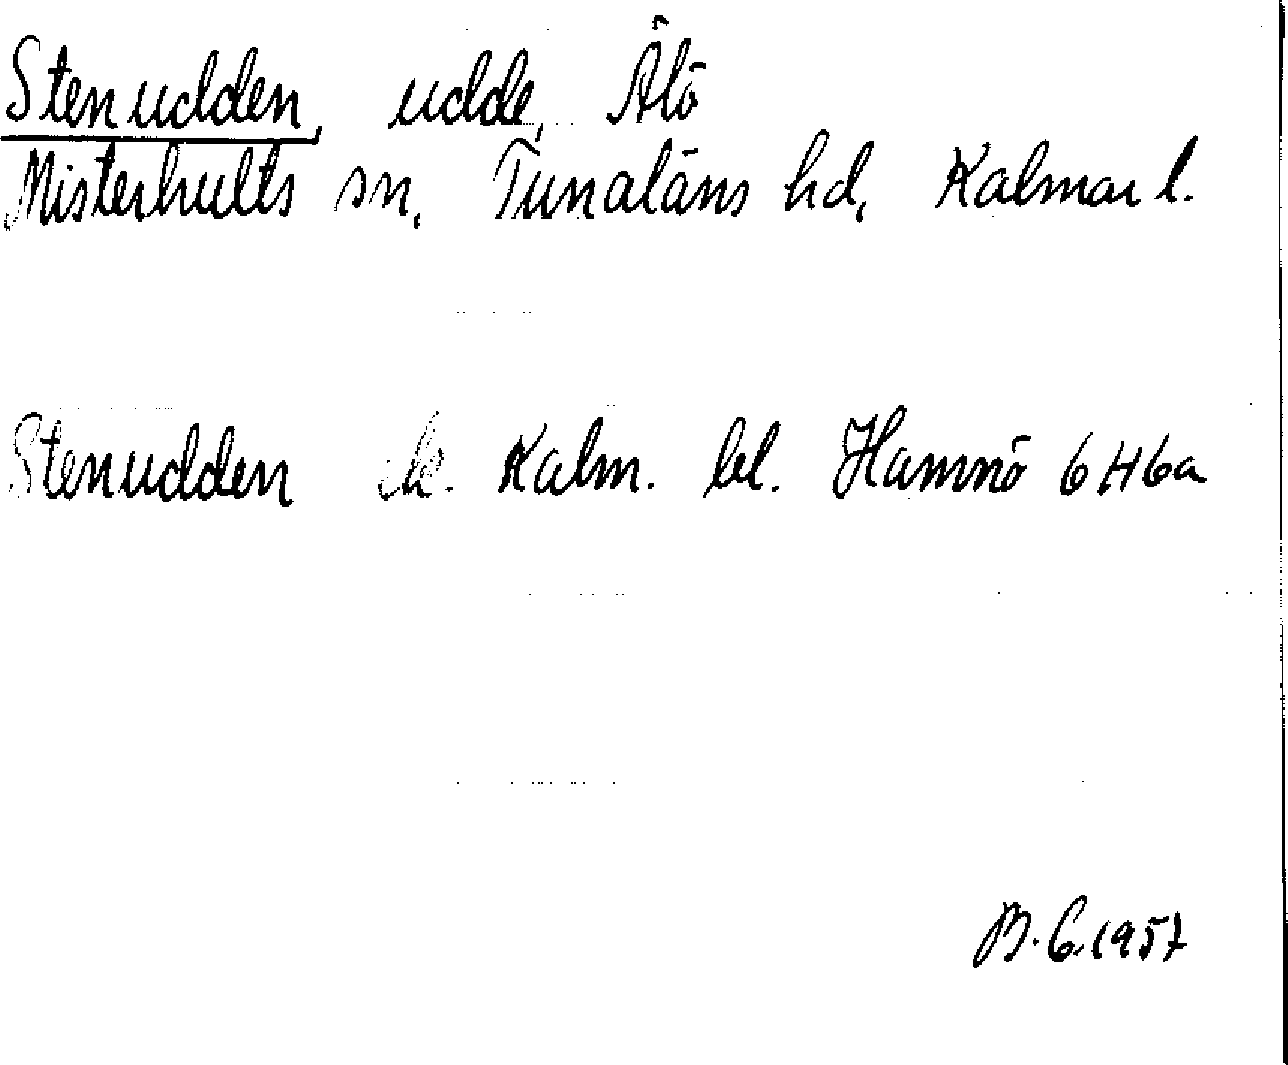 Stenudden, udde, Älö
Misterhults sn, Tunaläns hd, Kalmar l.
Stenudden ek. Kalm. bl. Hamnö 6H6a
B.G.1957